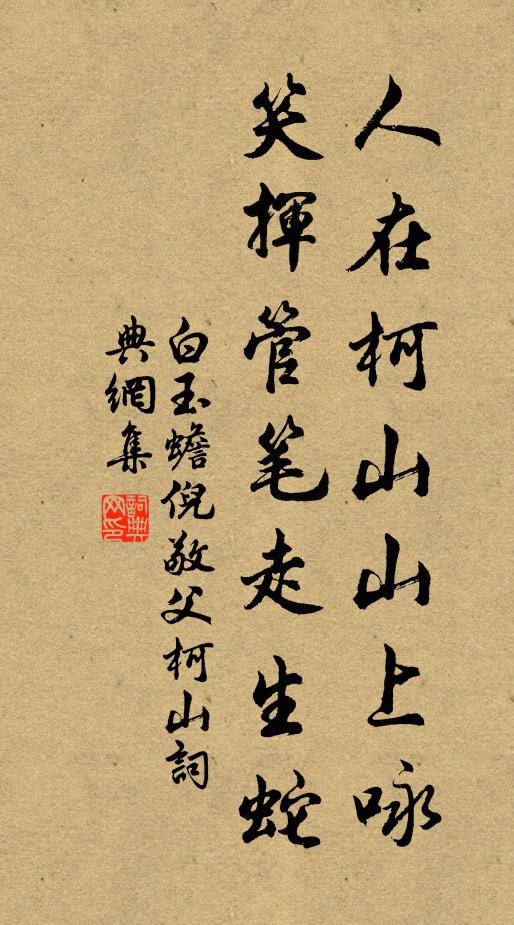 人在柯山山上咏
笑揮管笔走生蛇
白玉蟾倪敬父柯山詞
典網集
詞典
网印